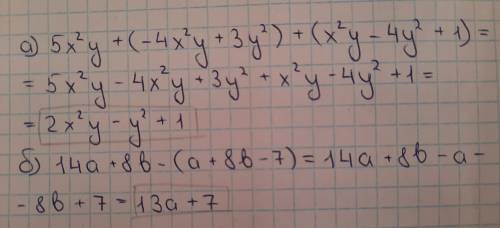 а) 5x²y + (-4x²y + 3y²) + (x²y - 4y² + 1) =
= 5x²y - 4x²y + 3y² + x²y - 4y² + 1 =
= 2x²y - y² + 1
б) 14a + 8b - (a + 8b - 7) = 14a + 8b - a -
- 8b + 7 = 13a + 7